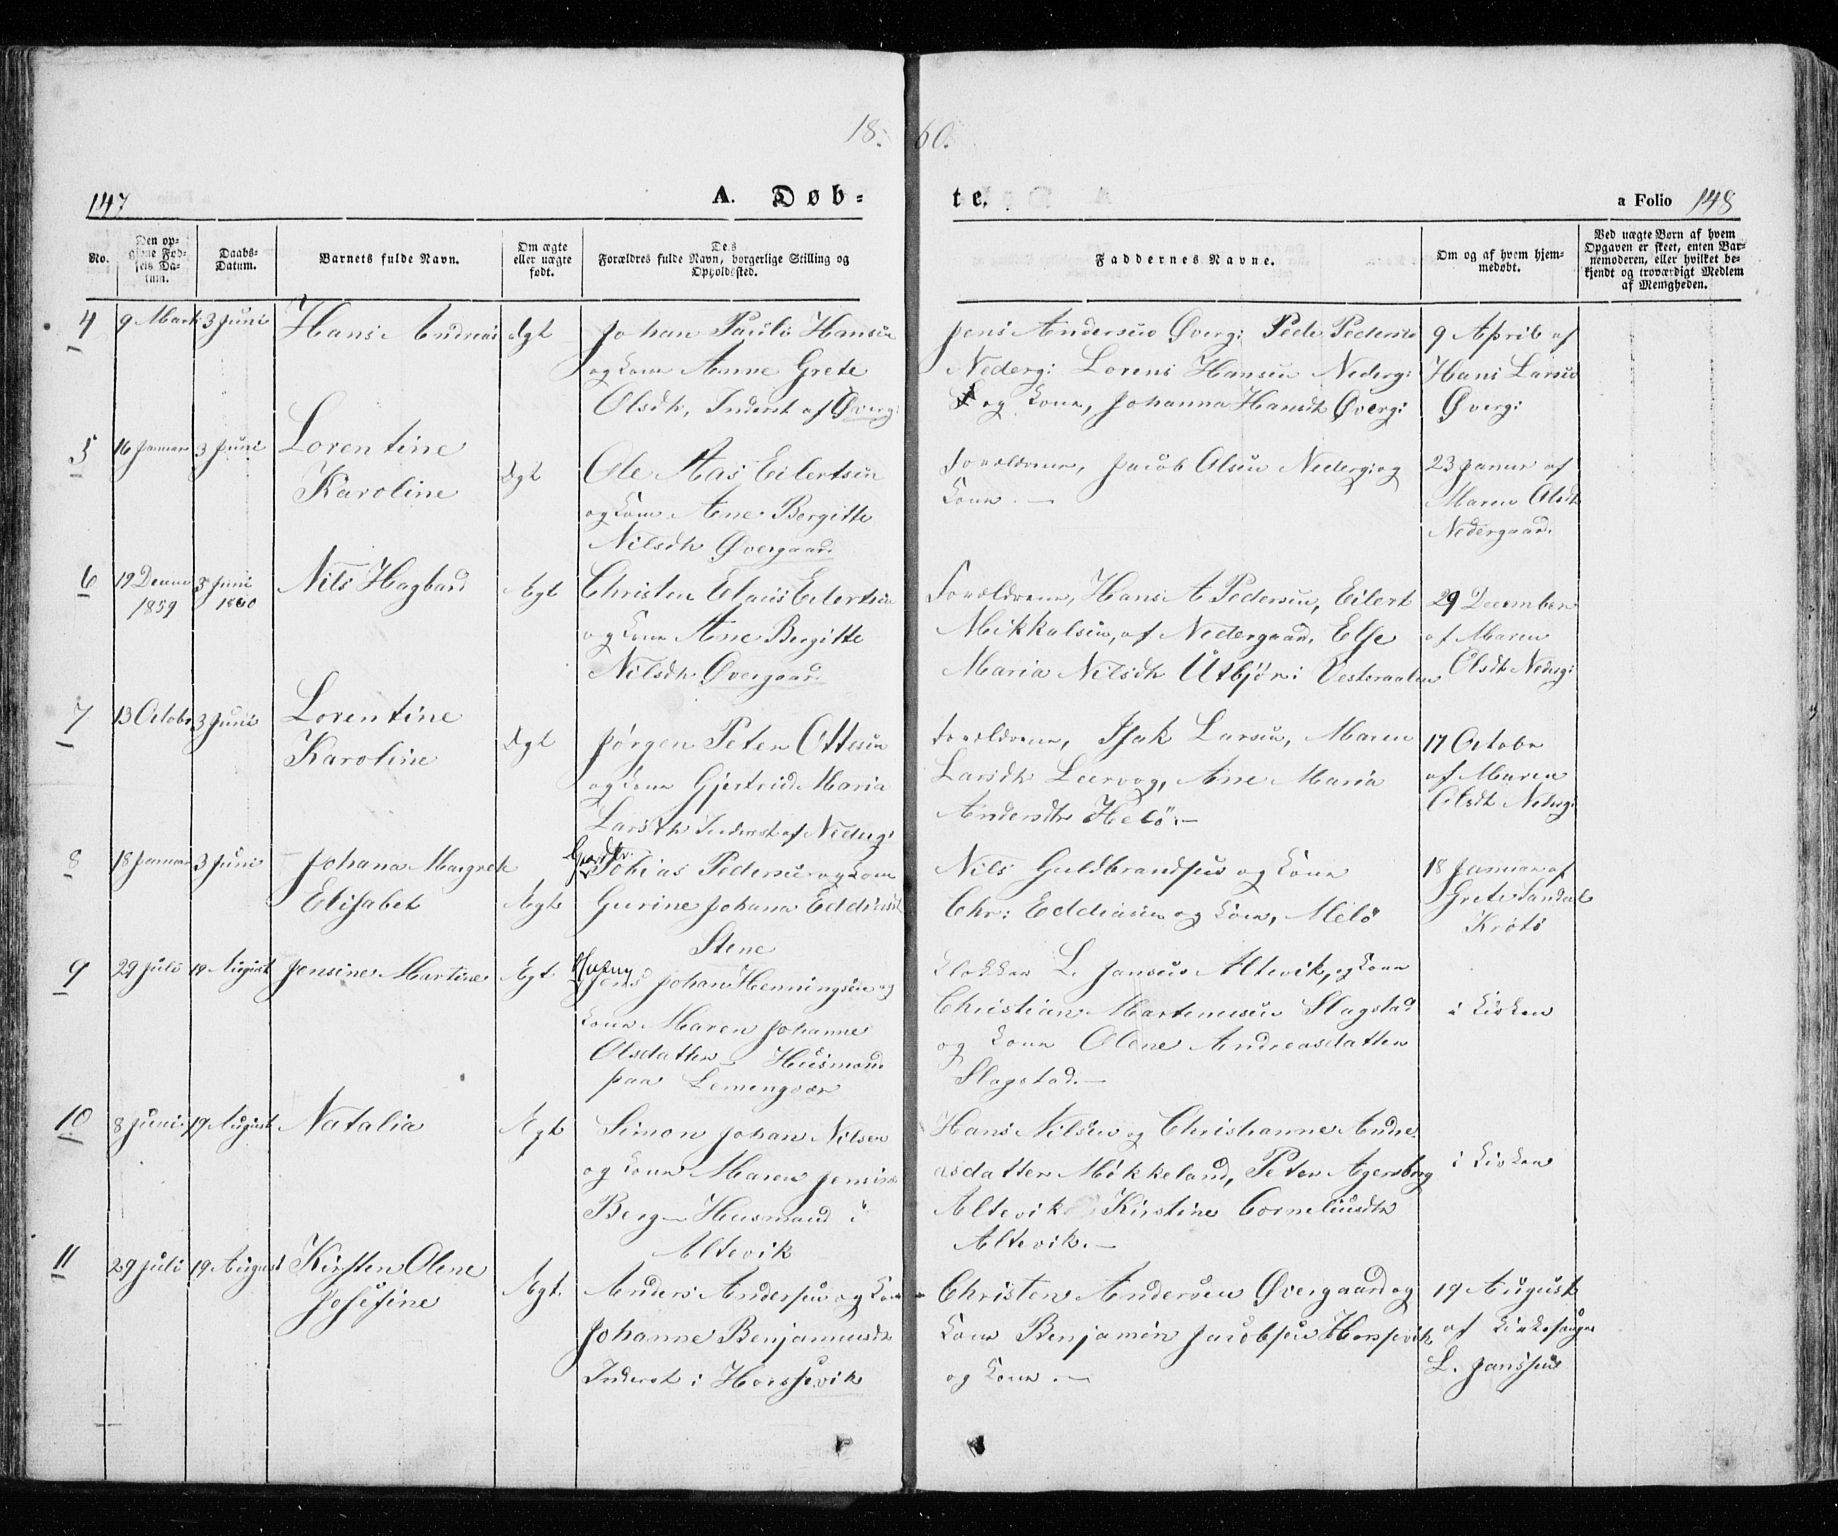 18 60.
147
A. Døb-
te.
a Folio 148
No.
Den op-
givne Fød-
sels Da-
tum.
Daabs-
Datum.
Barnets fulde Navn.
Om ægte
eller uægte
født.
Des
Forældres fulde Navn, borgerlige Stilling og
Opholdssted.
Faddernes Navne.
Om og af hvem hjem-
medøbt.
Ved uægte Børn af hvem
Opgaven er skeet, enten Bar-
nemoderen, eller hvilket be-
kjendt og troværdigt Medlem
af Menigheden.
4
9 Marts
3 Juni
Hans Andreas
Ægt
Johan Paulo Hansen
og Kone Anne Grete
Olsdtr, Inderst af Øverg:
Jens Andersen Øverg: Peder Pedersen
Nederg: Lorens Hansen Nederg:
og Kone, Johanna Hansdtr Øverg:
9 April af
Hans Larsen
Øverg:
5
16 Januar
3 Juni
Lorentine
Karoline
Ægt
Ole Aas Eilertsen
og Kone Ane Bergitte
Nilsdtr Øvergaard
Forældrene, Jacob Olsen Nederg: og
Kone. —
23 Januar af
Maren Olsdtr
Nedergaard.
6
19 Decem
1859
3 Juni
1860
Nils Hagbard
Ægt
Christen Claus Eilertsen
og Kone Ane Bergitte
Nilsdtr Øvergaard
Forældrene, Hans A Pedersen, Eilert
Mikkalsen, af Nedergaard, Else
Maria Nilsdtr Utbjør i Vesteraalen
29 December
af Maren
Olsdtr Nederg:
7
13 Octobr
3 Juni
Lorentine
Karoline
Ægt
Jørgen Peter Ottesen
og Kone Gjertrud Maria
Larsdtr Inderst af Nederg:
Forældrene, Isak Larsen, Maren
Larsdtr Leervog, Ane Maria
Andersdtr Helö. —
17 Octobr
af Maren
Olsdtr Nederg:
8
18 Januar
3 Juni
Johana Margrete
Elisabet
Ægt
Gaardbr:
Tobias Pedersen og Kone
Gurine Johana Eddiasdtr
Stene
Nils Guldbrandsen og Kone
Chr: Eddiasen og Kone, Melö
18 Januar af
Grete Sandal
Krøtö
9
29 Juli
19 August
Jensine Martine
Ægt.
Jens Johan Henningsen og
Kone Maren Johanne
Olsdatter Husmand
paa Lemengvær
Klokker L. Jansen Altevik, og Kone
Christian Martinusen Slagstad
og Kone Olene Andreasdatter
Slagstad. —
i Kirken
10
8 Juni
19 August
Natalia
Ægt
Simon Johan Nilsen
og Kone Maren Jensine
Berg — Husmand i
Altevik
Hans Nilsen og Christianne Andre
asdatter Møkkeland, Peter Agersborg
Altevik Kirstine Corneliusdtr
Altevik. —
i Kirken
11
29 Juli
19 August
Kirsten Olene
Josefine
Ægt.
Anders Andersen og Kone
Johanne Benjaminsdtr
Inderst i Horssevik
Christen Andersen Øvergaard og
Kone Benjamin Jacobsen Horssevik
og Kone. —
19 August
af Kirkesanger
L. Janssen